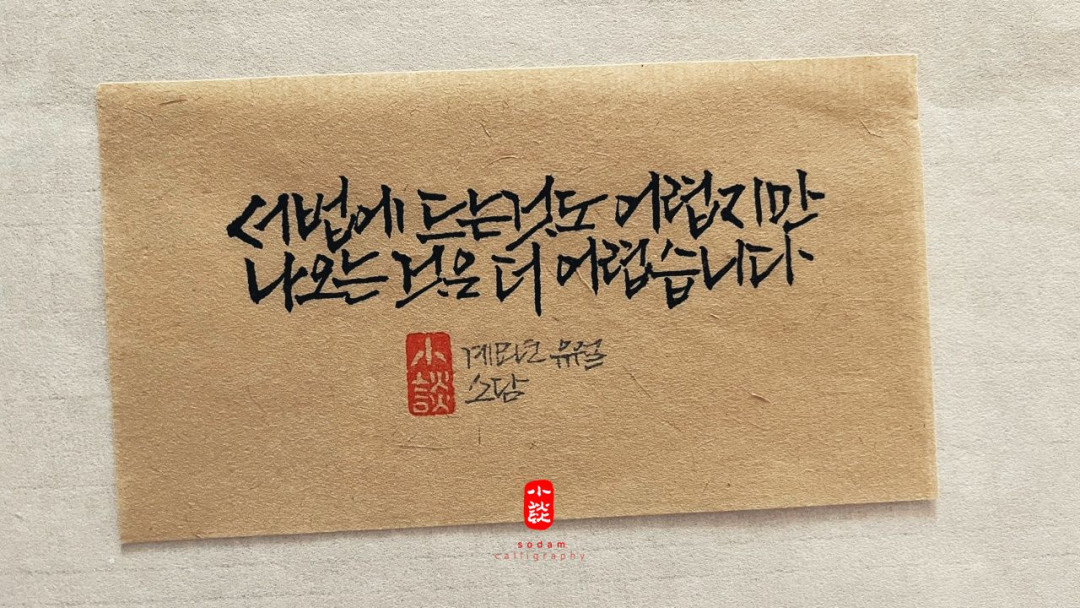 서법에 드는것도 어렵지만
나오는 것은 더 어렵습니다.
小談
계묘년 유월
소담
小談
sodam
calligraphy